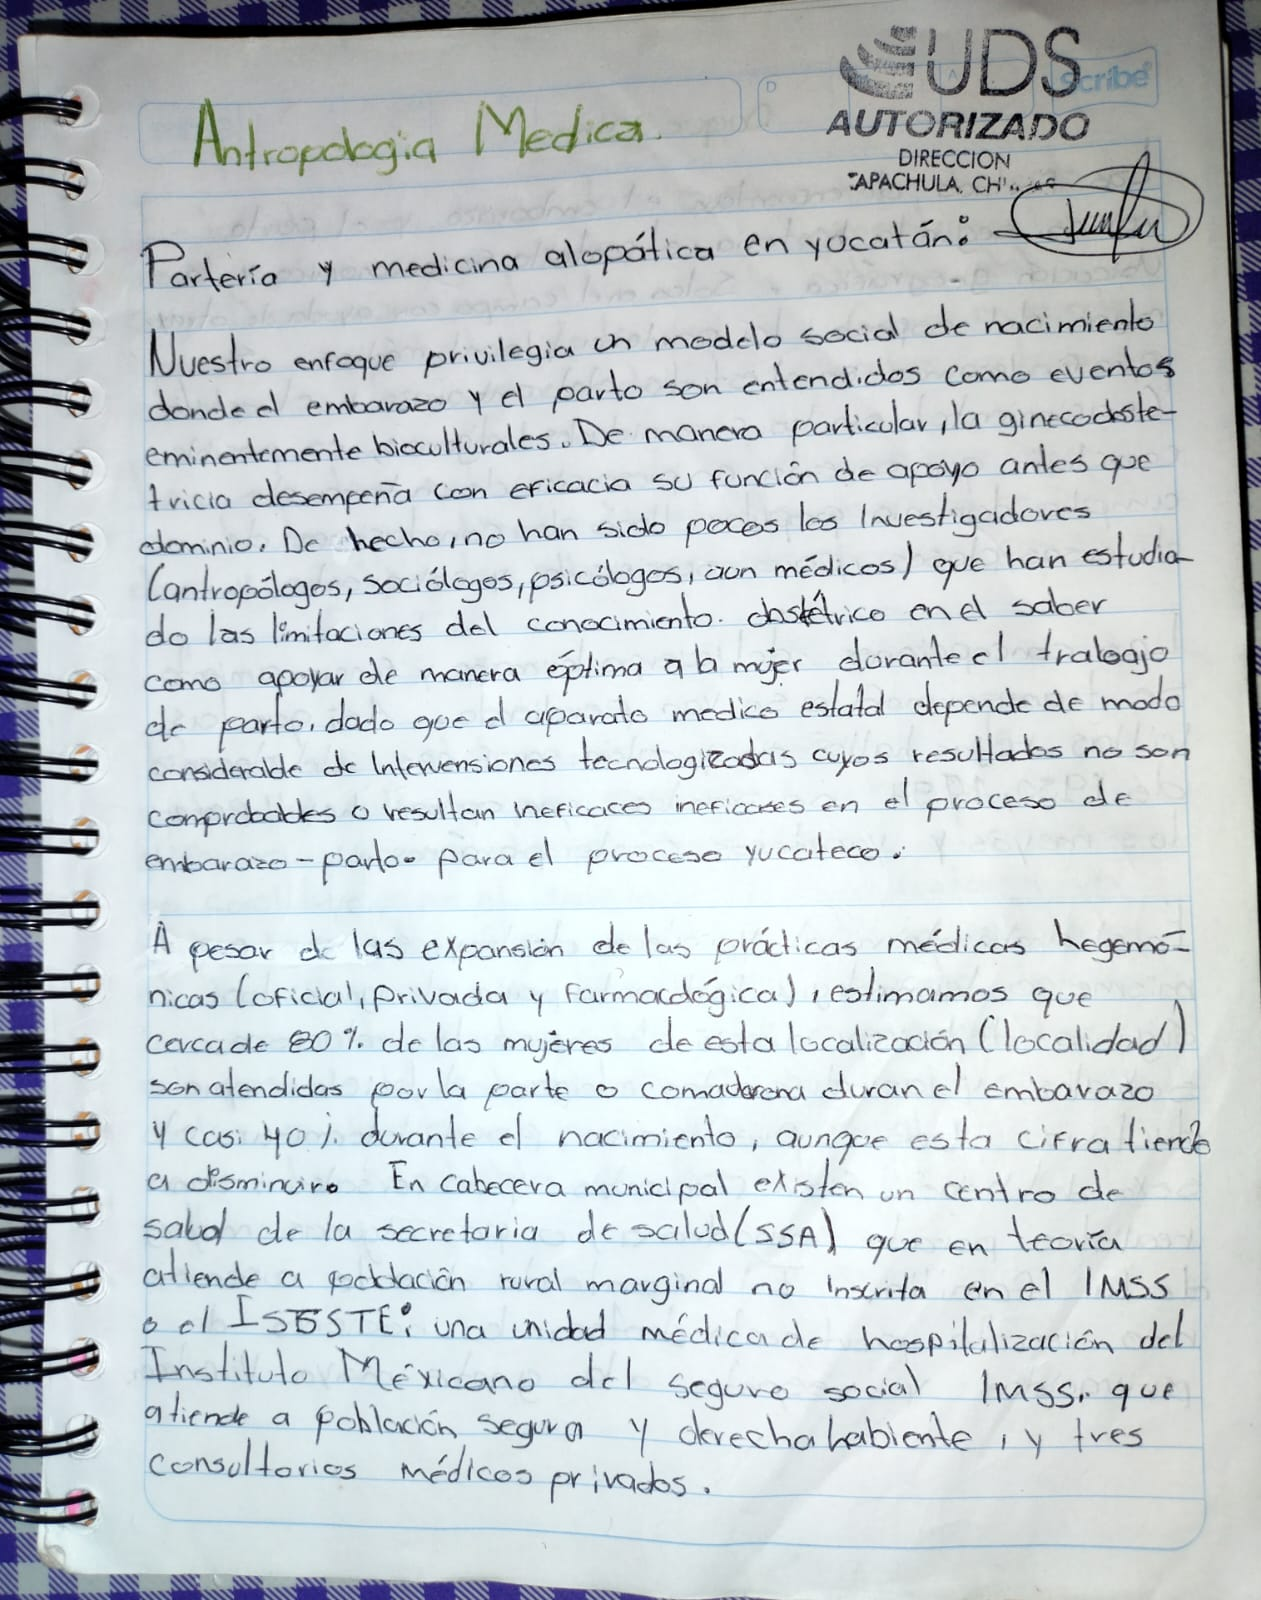 UDS
Scribe
AUTORIZADO
DIRECCION
TAPACHULA, CHI
Antropologia Medica.
Partería y medicina alopática en yucatán:
Nuestro enfoque privilegia un modelo social de nacimiento
donde el embarazo y el parto son entendidos como eventos
eminentemente bioculturales. De manera particular, la ginecoobste-
tricia desempeña con eficacia su función de apoyo antes que
dominio. De hecho, no han sido pocos los Investigadores
(antropólogos, sociólogos, psicólogos, aun médicos) que han estudia-
do las limitaciones del conocimiento. obstétrico en el saber
como apoyar de manera óptima a la mujer durante el trabajo
de parto, dado que el aparato medico estatal depende de modo
considerable de Intervensiones tecnologizadas cuyos resultados no son
comprobables o resultan ineficaces ineficases en el proceso de
embarazo-parto. para el proceso yucateco.
A pesar de las expansión de las prácticas médicas hegemó-
nicas (oficial, privada y farmacológica), estimamos que
cerca de 80% de las mujeres de esta localización (localidad)
son atendidas por la parte o comadrona duran el embarazo
y casi 40%. durante el nacimiento, aunque esta cifra tiende
a disminuir. En cabecera municipal existen un centro de
salud de la secretaria de salud (SSA) que en teoría
atiende a población rural marginal no inscrita en el IMSS
o el ISSSTE: una unidad médica de hospitalización del
Instituto Méxicano del seguro social IMSS. que
atiende a población segura y derecha habiente, y tres
consultorios médicos privados.